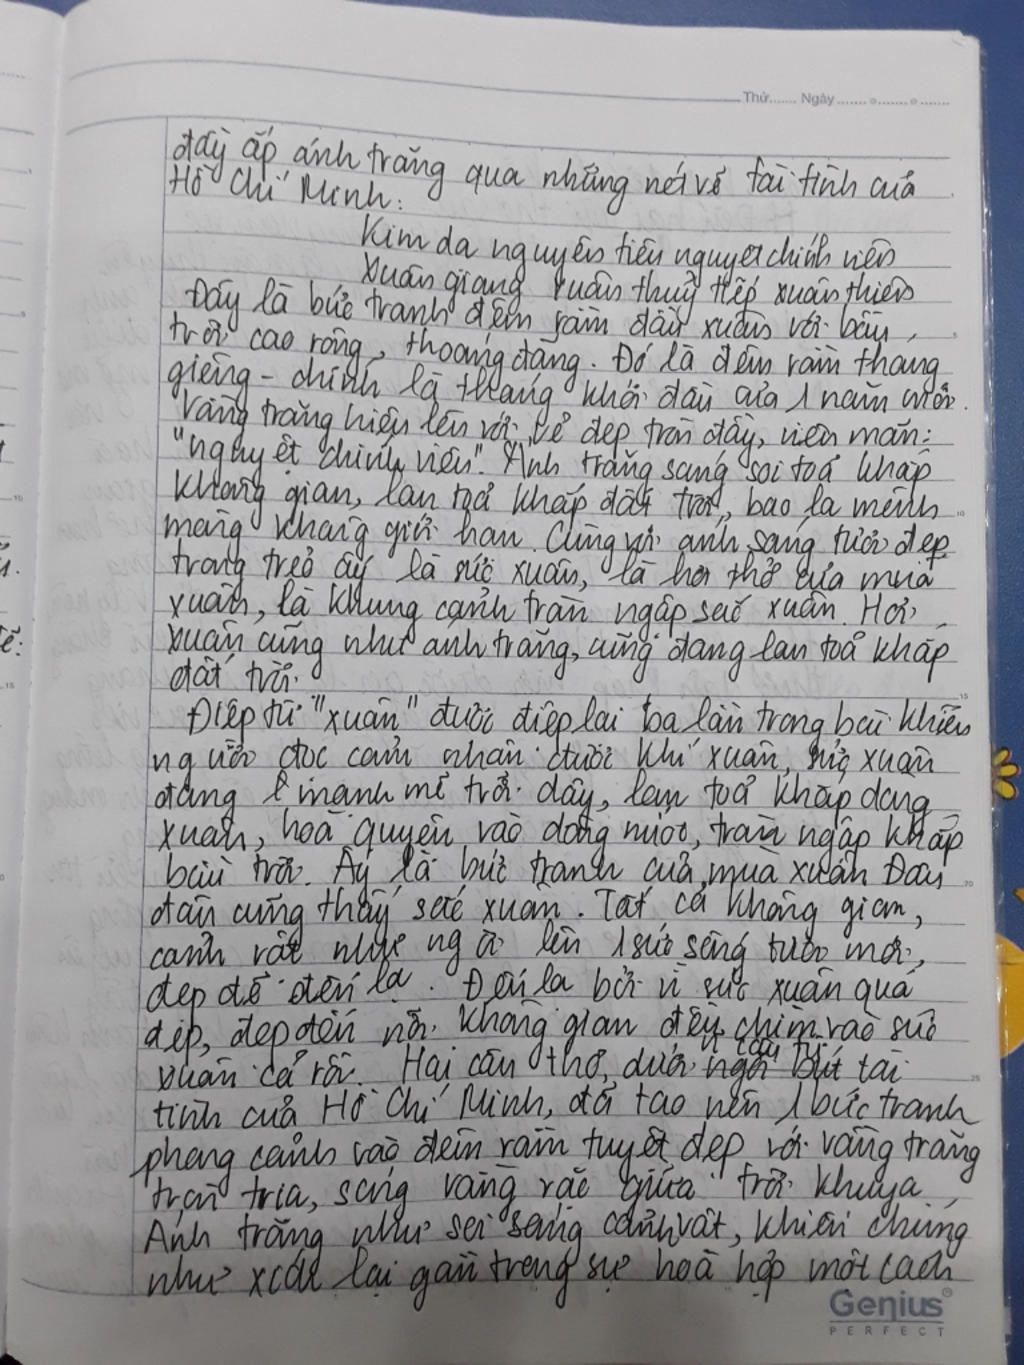 Thứ....... Ngày.......o.......o.......
đầy ắp ánh trăng qua những nét vẽ tài tình của
Hồ Chí Minh:
Kim dạ nguyên tiêu nguyệt chính viên
Xuân giang xuân thuỷ tiếp xuân thiên
Đây là bức tranh đêm rằm đầu xuân với bầu
trời cao rộng, thoáng đãng. Đó là đêm rằm tháng
giêng - chính là tháng khởi đầu của 1 năm mới.
Vầng trăng hiện lên với vẻ đẹp tròn đầy, viên mãn:
"nguyệt chính viên". Ánh trăng sáng soi toả khắp
không gian, lan toả khắp đất trời, bao la mênh
mông không giới hạn. Cùng với ánh sáng tươi đẹp
trong trẻo ấy là sức xuân, là hơi thở của mùa
xuân, là khung cảnh tràn ngập sắc xuân. Hơi
xuân cũng như ánh trăng, cũng đang lan toả khắp
đất trời.
Điệp từ "xuân" được điệp lại ba lần trong bài khiến
người đọc cảm nhận được khí xuân, sức xuân
đang mạnh mẽ trỗi dậy, lan toả khắp dòng
xuân, hoà quyện vào dòng nước, tràn ngập khắp
bầu trời. Ấy là bức tranh của mùa xuân. Đâu
đâu cũng thấy sắc xuân. Tất cả không gian,
cảnh vật như ngời lên 1 sức sống tươi mới,
đẹp đẽ đến lạ. Đến lạ bởi vì sức xuân quá
đẹp, đẹp đến nỗi không gian đều chìm vào sức
xuân cả rồi. Hai câu thơ, dưới ngòi bút tài
tình của Hồ Chí Minh, đã tạo nên 1 bức tranh
phong cảnh vào đêm rằm tuyệt đẹp với vầng trăng
tròn trịa, sáng vằng vặc giữa trời khuya.
Ánh trăng như soi sáng cảnh vật, khiến chúng
như xích lại gần trong sự hoà hợp một cách
Genius
PERFECT